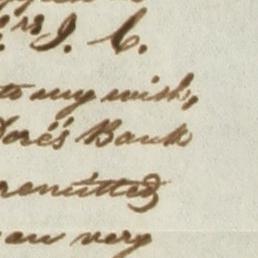 rs J. C.
to my wish,
Doré's Bank
remitted
an very